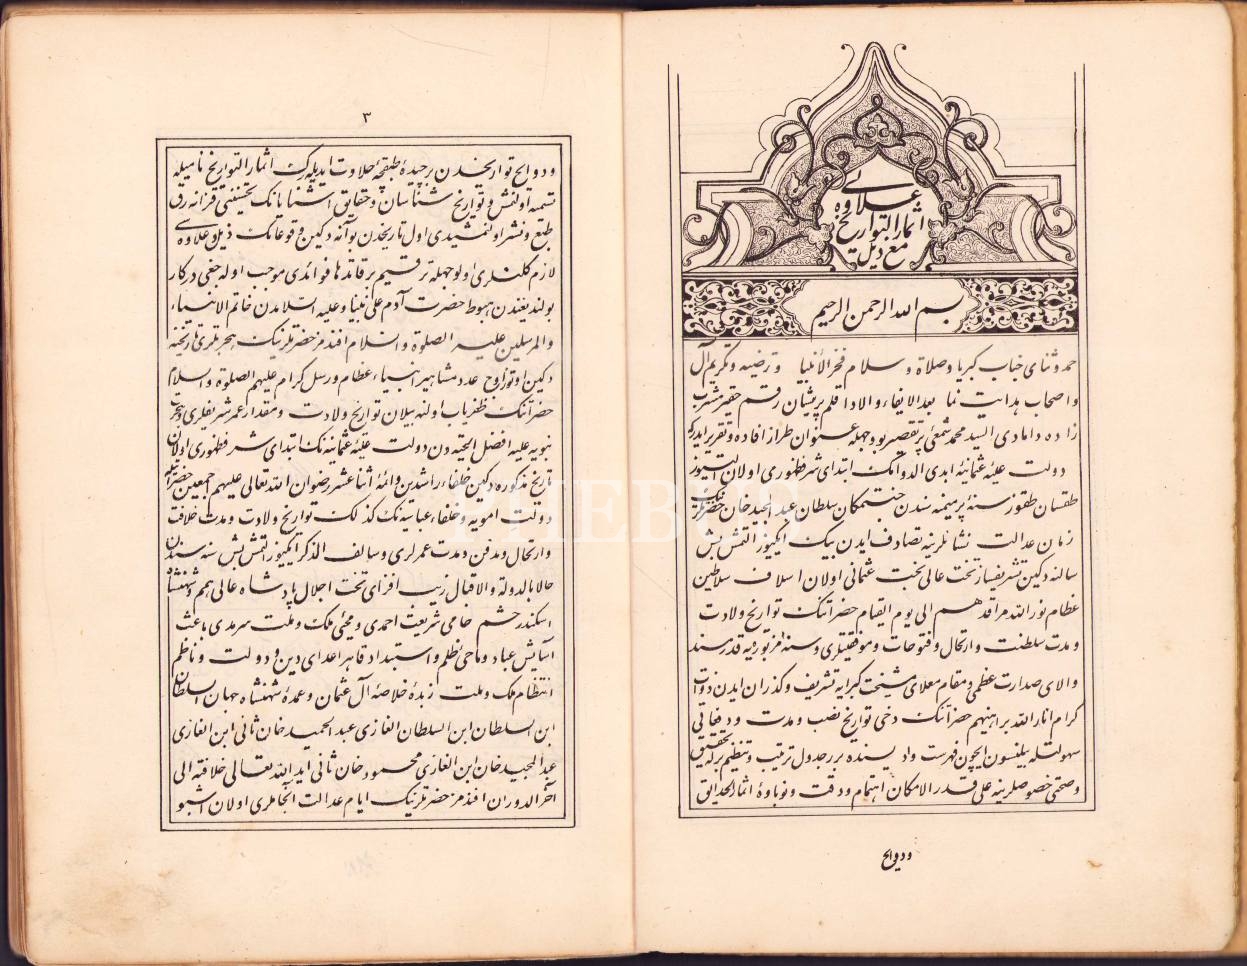 علاوه لى
اثمار التواريخ
مع ذيل
بسم الله الرحمن الرحيم
حمد وثناى جناب كبريا وصلاة وسلام فخر الانبيا وترضيه وتكريم آل
واصحاب هدايت نما بعد الايفاء والادا قلم پريشان رقم حقير مشرب
زاده دامادى السيد محمد شمعئ پرتقصير بو وجهله عنوان طراز افاده وتقرير ايدركه
دولت عليۀ عثمانيۀ ابدى الدوامك ابتداى شرفظهورى اولان التيوز
طقسان طقوز سنۀ پرميمنه سندن جنتمكان سلطان عبد المجيد خان حضرتلرينك
زمان عدالت نشانلرينه تصادف ايدن بيك ايكيوز التمش بش
سالنه دكين تشريفساز تخت عالى بخت عثمانى اولان اسلاف سلاطين
عظام نور الله مراقدهم الى يوم القيام حضراتنك تواريخ ولادت
ومدت سلطنت وارتحال وفتوحات وموفقيتلرى وسنۀ مزبوره يه قدر مسند
والاى صدارت عظمى ومقام معلاى مشيخت كبرايه تشريف وگذران ايدن ذوات
كرام انار الله براهينهم حضراتنك دخى تواريخ نصب ومدت ودفعاتى
سهولتله بيلنسون ايچون فهرست واديسنده بر جدول ترتيب وتنظيم بر له تحقيق
وصحتى خصوصلرينه على قدر الامكان اهتمام ودقت ونوباوۀ اثمار الحدايق
ودوايح
٣
ودوايح تواريخدن برچيدۀ طبقچۀ حلاوت ايديله رك اثمار التواريخ ناميله
تسميه اولنمش وتواريخ شناسان وحقايق آشنايانك تحسينى قزانه رق
طبع ونشر اولنمشيدى اول تاريخدن بو آنه دكين وقوعاتك ذيل وعلاوه سى
لازم كلنلرى اولوجهله ترقيم بر قاندها فوائدى موجب اوله جغى دركار
بولنديغندن هبوط حضرت آدم على نبينا وعليه السلامدن خاتم الانبياء
والمرسلين عليه الصلوة والسلام افندمز حضرتلرينك هجرتلرى تاريخنه
دكين اوتوز اوچ عدد مشاهير انبياء عظام ورسل كرام عليهم الصلوة والسلام
حضراتنك ظفرياب اولنه بيلان تواريخ ولادت ومقدار عمر شريفلرى وهجرت
نبويه عليه افضل التحيه دن دولت عليۀ عثمانيه نك ابتداى شرفظهورى اولان
تاريخ مذكوره دكين خلفاء راشدين وائمۀ اثنا عشر رضوان الله تعالى عليهم اجمعين حضراتيله
دولت امويه وخلفاء عباسيه نك كذلك تواريخ ولادت ومدت خلافت
وارتحال ومدفن ومدت عمرلرى وسالف الذكر ايكيوز التمش بش سنه سندن
حالا بالدولة والاقبال زيب افزاى تخت اجلال پادشاه عالى هم وشهنشاه
اسكندر حشم حامى شريعت احمدى ومحيئ ملك وملت سرمدى باعث
آسايش عباد وماحى ظلم واستبداد قاهر اعداى دين ودولت وناظم
انتظام ملك وملت زبدۀ خلاصۀ آل عثمان وعمدۀ شهنشاه جهان السلطان
ابن السلطان ابن السلطان الغازى عبد الحميد خان ثانى ابن الغازى
عبد المجيد خان ابن الغازى محمود خان ثانى ايد الله تعالى خلافته الى
آخر الدوران افندمز حضرتلرينك ايام عدالت انجاملرى اولان اشبو
PHEBUS